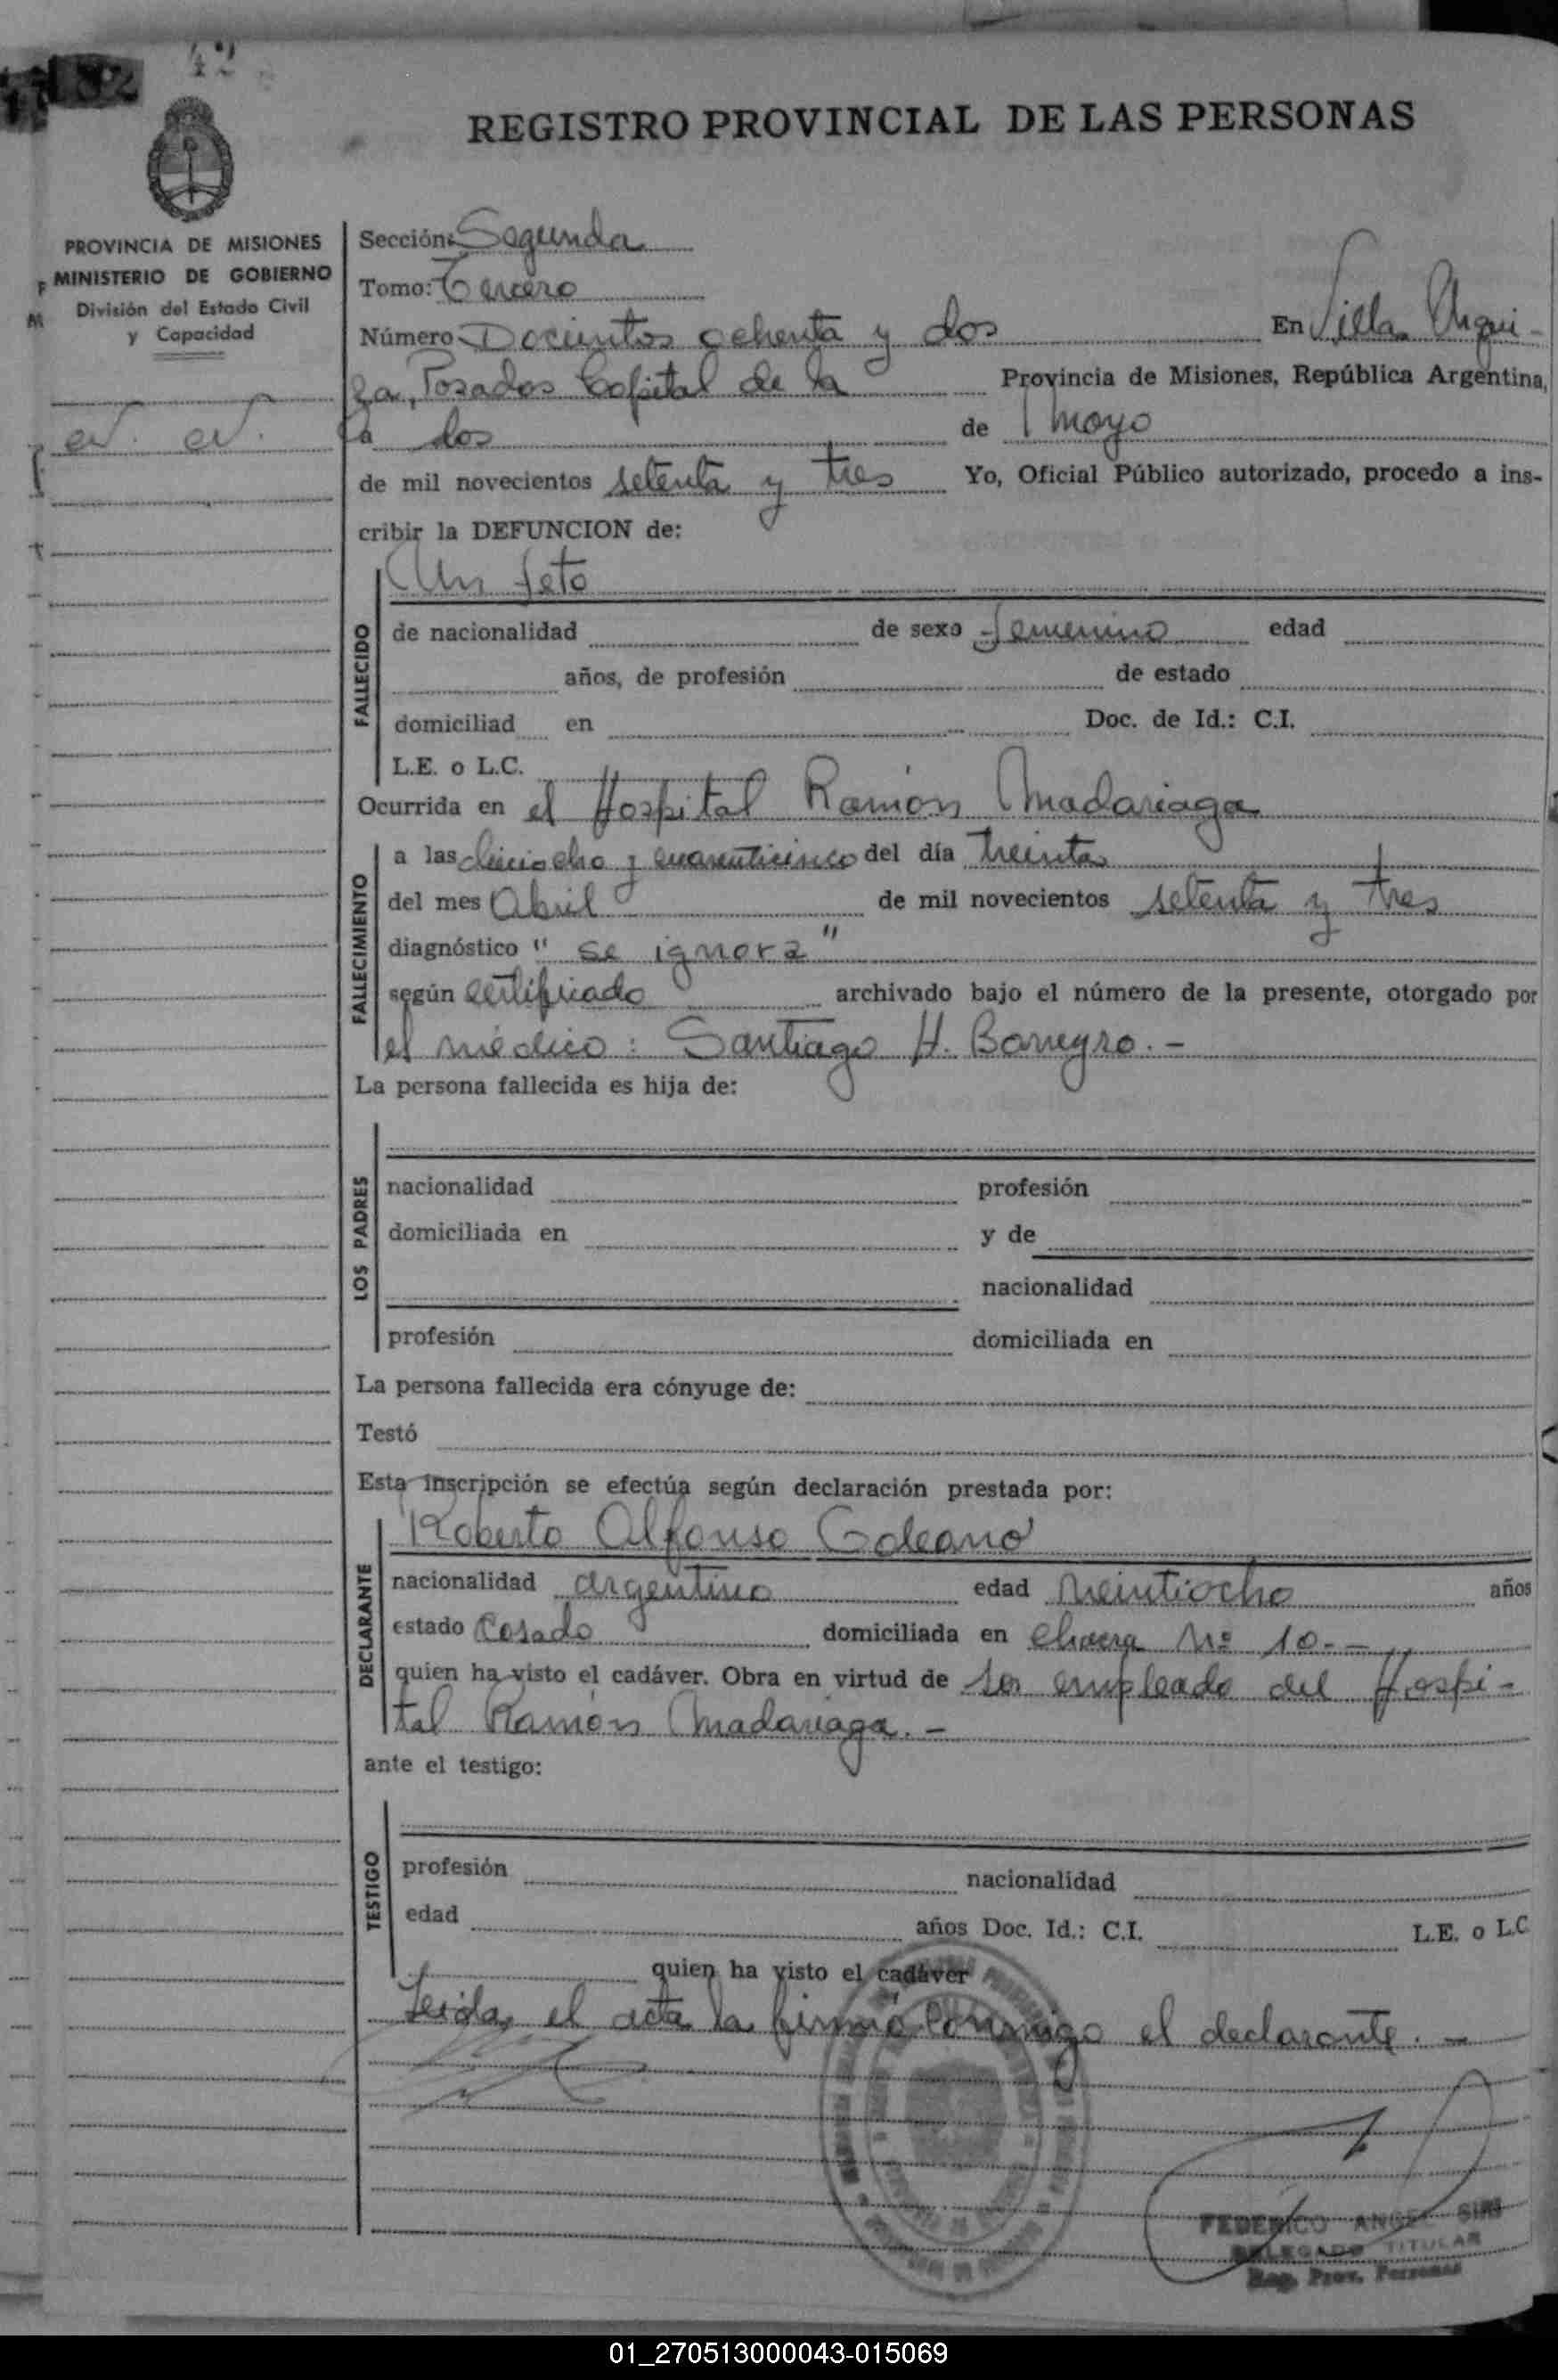 42
REGISTRO PROVINCIAL DE LAS PERSONAS
PROVINCIA DE MISIONES
MINISTERIO DE GOBIERNO
División del Estado Civil
y Capacidad
Sección: Segunda
Tomo: Tercero
Número Docientos ochenta y dos En Villa Urqui-
za, Posadas Capital de la Provincia de Misiones, República Argentina,
a dos de mayo
de mil novecientos setenta y tres Yo, Oficial Público autorizado, procedo a ins-
cribir la DEFUNCION de:
Un feto
FALLECIDO
de nacionalidad de sexo femenino edad
años, de profesión de estado
domiciliad en Doc. de Id.: C.I.
L.E. o L.C.
Ocurrida en el Hospital Ramón Madariaga
FALLECIMIENTO
a las dieciocho y cuarenticinco del día treinta
del mes Abril de mil novecientos setenta y tres
diagnóstico " se ignora "
según certificado archivado bajo el número de la presente, otorgado por
el médico: Santiago H. .-
La persona fallecida es hija de:
LOS PADRES
nacionalidad profesión
domiciliada en y de
nacionalidad
profesión domiciliada en
La persona fallecida era cónyuge de:
Testó
Esta inscripción se efectúa según declaración prestada por:
DECLARANTE
Roberto Alfonso Galeano
nacionalidad argentino edad veintiocho años
estado Casado domiciliada en chacra Nº 10.-
quien ha visto el cadáver. Obra en virtud de ser empleado del Hospi-
tal Ramón Madariaga.-
ante el testigo:
TESTIGO
profesión nacionalidad
edad años Doc. Id.: C.I. L.E. o L.C
quien ha visto el cadáver
Leida el acta la firmó conmigo el declarante.-
FEDERICO ANGEL SIRI
DELEGADO TITULAR
Reg. Prov. Personas
01_270513000043-015069